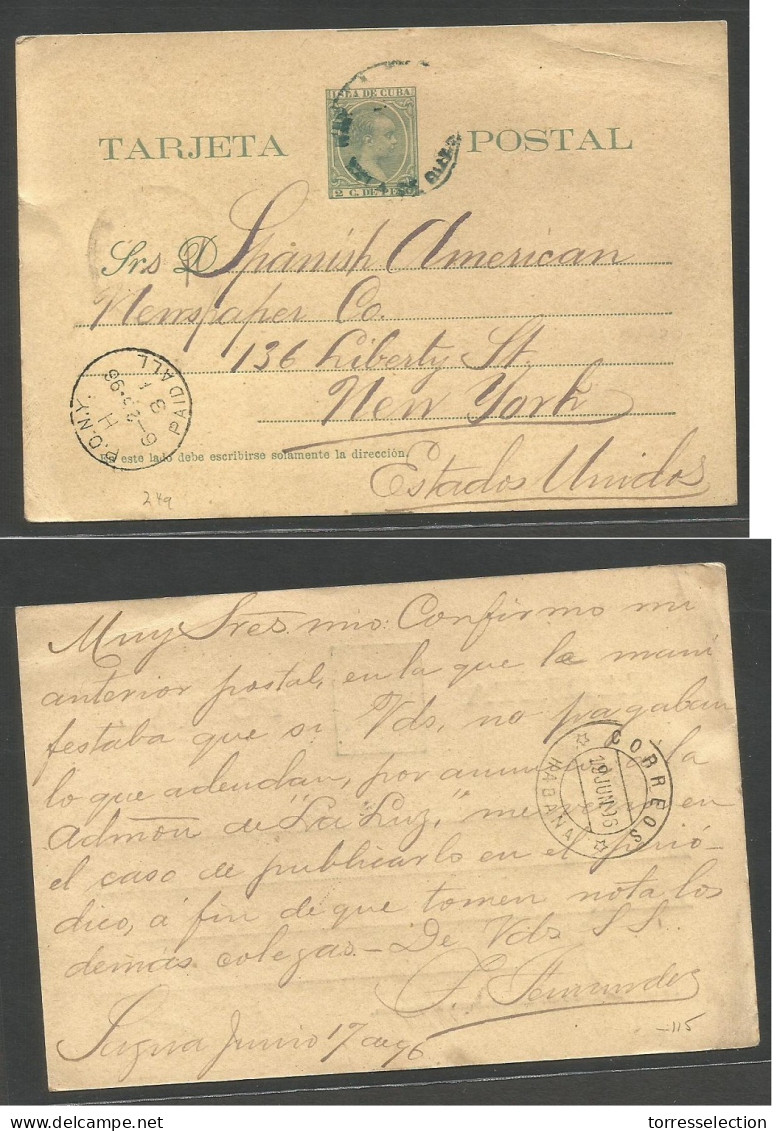 ISLA DE CUBA
TARJETA POSTAL
2 C. DE PESO
Srs D Spanish American
Newspaper Co.
136 Liberty St.
New York
Estados Unidos
PAID ALL
3
H
6-23-96
P.O.N.Y.
En este lado debe escribirse solamente la dirección.
249
Muy Sres. mio: Confirmo mi
anterior postal, en la que le mani
festaba que si Vds. no pagaban
lo que adeudan, por anuncio, á la
Admón de "La Luz," me veré en
el caso de publicarlo en el perió-
dico, á fin de que tomen nota los
demás colegas.- De Vds S.S.
Sagua Junio 17 de 96
CORREOS
19 JUN 96
HABANA
-115
www.delcampe.net
torresselection